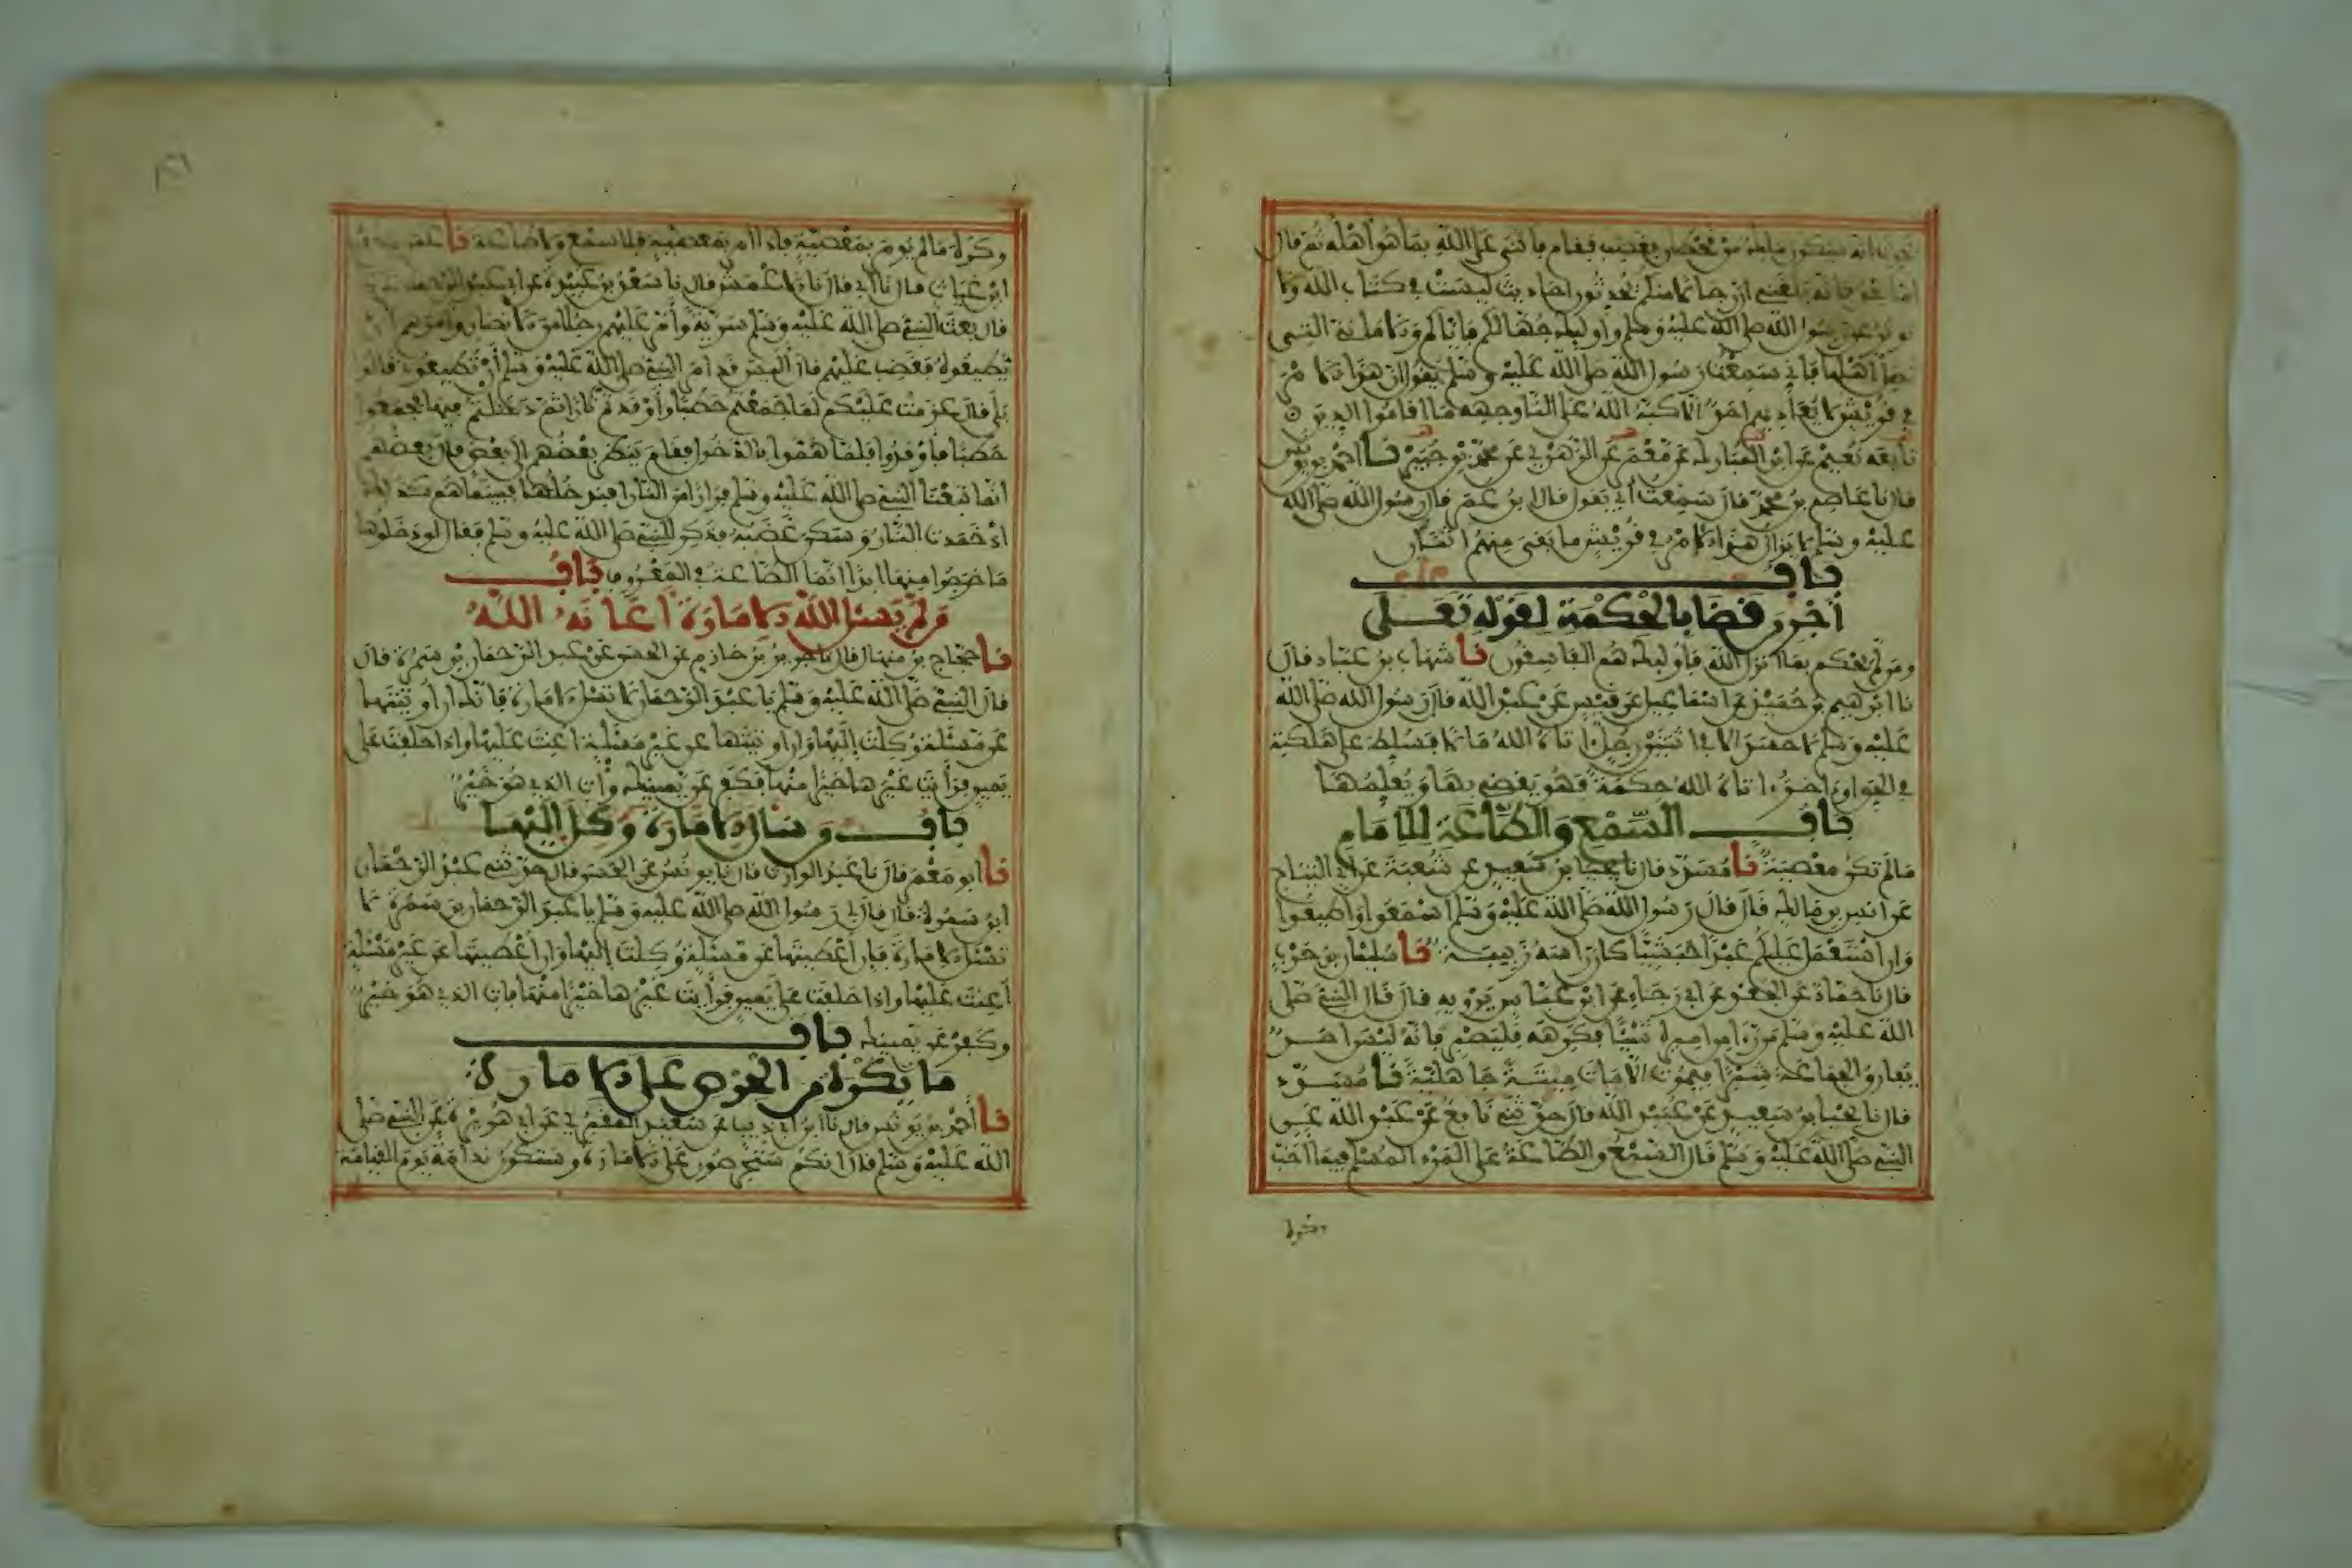 يحدث انه سيكون ملك من قحطان فغضب فقام فاثنى على الله بما هو اهله ثم قال
اما بعد فانه بلغني ان رجالا منكم يحدثون احاديث ليست في كتاب الله ولا
توثر عن رسول الله صلى الله عليه وسلم وأوليك جهالكم فاياكم والاماني التي
تضل اهلها فاني سمعت رسول الله صلى الله عليه وسلم يقول ان هذا الامر
في قريش لا يعاديهم احد الا كبه الله على النار وجهه ما اقاموا الدين
تابعه نعيم عن ابن المبارك عن معمر عن الزهري عن محمد بن جبير نا احمد بن يونس
قال نا عاصم بن محمد قال سمعت أبي يقول قال ابن عمر قال رسول الله صلى الله
عليه وسلم لا يزال هذا الامر في قريش ما بقي منهم اثنان
باب
أجر من قضا بالحكمة لقوله تعلى
ومن لم يحكم بما انزل الله فاوليك هم الفاسقون نا شهاب بن عباد قال
نا ابرهيم بن حميد عن اسماعيل عن قيس عن عبد الله قال رسول الله صلى الله
عليه وسلم لا حسد الا في اثنتين رجل اتاه الله مالا فسلط على هلكته
في الحق واخر اتاه الله حكمة فهو يقضي بها ويعلمها
باب السمع والطاعة للامام
ما لم تكن معصية نا مسدد قال نا يحيا بن سعيد عن شعبة عن ابي التياح
عن انس بن مالك قال قال رسول الله صلى الله عليه وسلم اسمعوا واطيعوا
وان استعمل عليكم عبد حبشي كان راسه زبيبة نا سليمان بن حرب
قال نا حماد عن الجعد عن ابي رجاء عن ابن عباس يرويه قال قال النبي صلى
الله عليه وسلم من راى من اميره شيئا فكرهه فليصبر فانه ليس احد
يفارق الجماعة شبرا فيموت الا مات ميتة جاهلية نا مسدد
قال نا يحيا بن سعيد عن عبيد الله قال حدثني نافع عن عبد الله عن
النبي صلى الله عليه وسلم قال السمع والطاعة على المرء المسلم فيما احب
وكره
وكره ما لم يومر بمعصية فاذا امر بمعصية فلا سمع ولا طاعة نا عمر بن حفص
ابن غياث قال نا ابي قال نا الاعمش قال نا سعد بن عبيدة عن ابي عبد الرحمن
قال بعث النبي صلى الله عليه وسلم سرية وأمر عليهم رجلا من الانصار وامرهم ان
يطيعوه فغضب عليهم قال أليس قد امر النبي صلى الله عليه وسلم أن تطيعوني قالوا
بلى قال عزمت عليكم لما جمعتم حطبا وأوقدتم نارا ثم دخلتم فيها فجمعوا
حطبا فأوقدوا فلما هموا بالدخول فقام ينظر بعضهم الى بعض فقال بعضهم
انما تبعنا النبي صلى الله عليه وسلم فرارا من النار افندخلها فبينما هم كذلك
اذ خمدت النار وسكن غضبه فذكر للنبي صلى الله عليه وسلم فقال لو دخلوها
ما خرجوا منها ابدا انما الطاعة في المعروف باب
من لم يسل الله الامارة اعانه الله
نا حجاج بن منهال قال نا جرير بن حازم عن الحسن عن عبد الرحمان بن سمرة قال
قال النبي صلى الله عليه وسلم يا عبد الرحمان لا تسل الامارة فانك ان أوتيتها
عن مسئلة وكلت إليها وان اوتيتها عن غير مسئلة اعنت عليها واذا حلفت على
يمين فرأيت غيرها خيرا منها فكفر عن يمينك وأت الذي هو خير
باب من سال الامارة وكل اليها
نا ابو معمر قال نا عبد الوارث قال نا يونس عن الحسن قال حدثني عبد الرحمان
ابن سمرة قال قال لي رسول الله صلى الله عليه وسلم يا عبد الرحمان بن سمرة لا
تسئل الامارة فإن أعطيتها عن مسئلة وكلت إليها وإن أعطيتها عن غير مسئلة
أعنت عليها واذا حلفت على يمين فرأيت غيرها خيرا منها فات الذي هو خير
وكفر عن يمينك باب
ما يكره من الحرص على الامارة
نا أحمد بن يونس قال نا ابن ابي ذيب عن سعيد المقبري عن ابي هريرة عن النبي صلى
الله عليه وسلم قال انكم ستحرصون على الامارة وستكون ندامة يوم القيامة